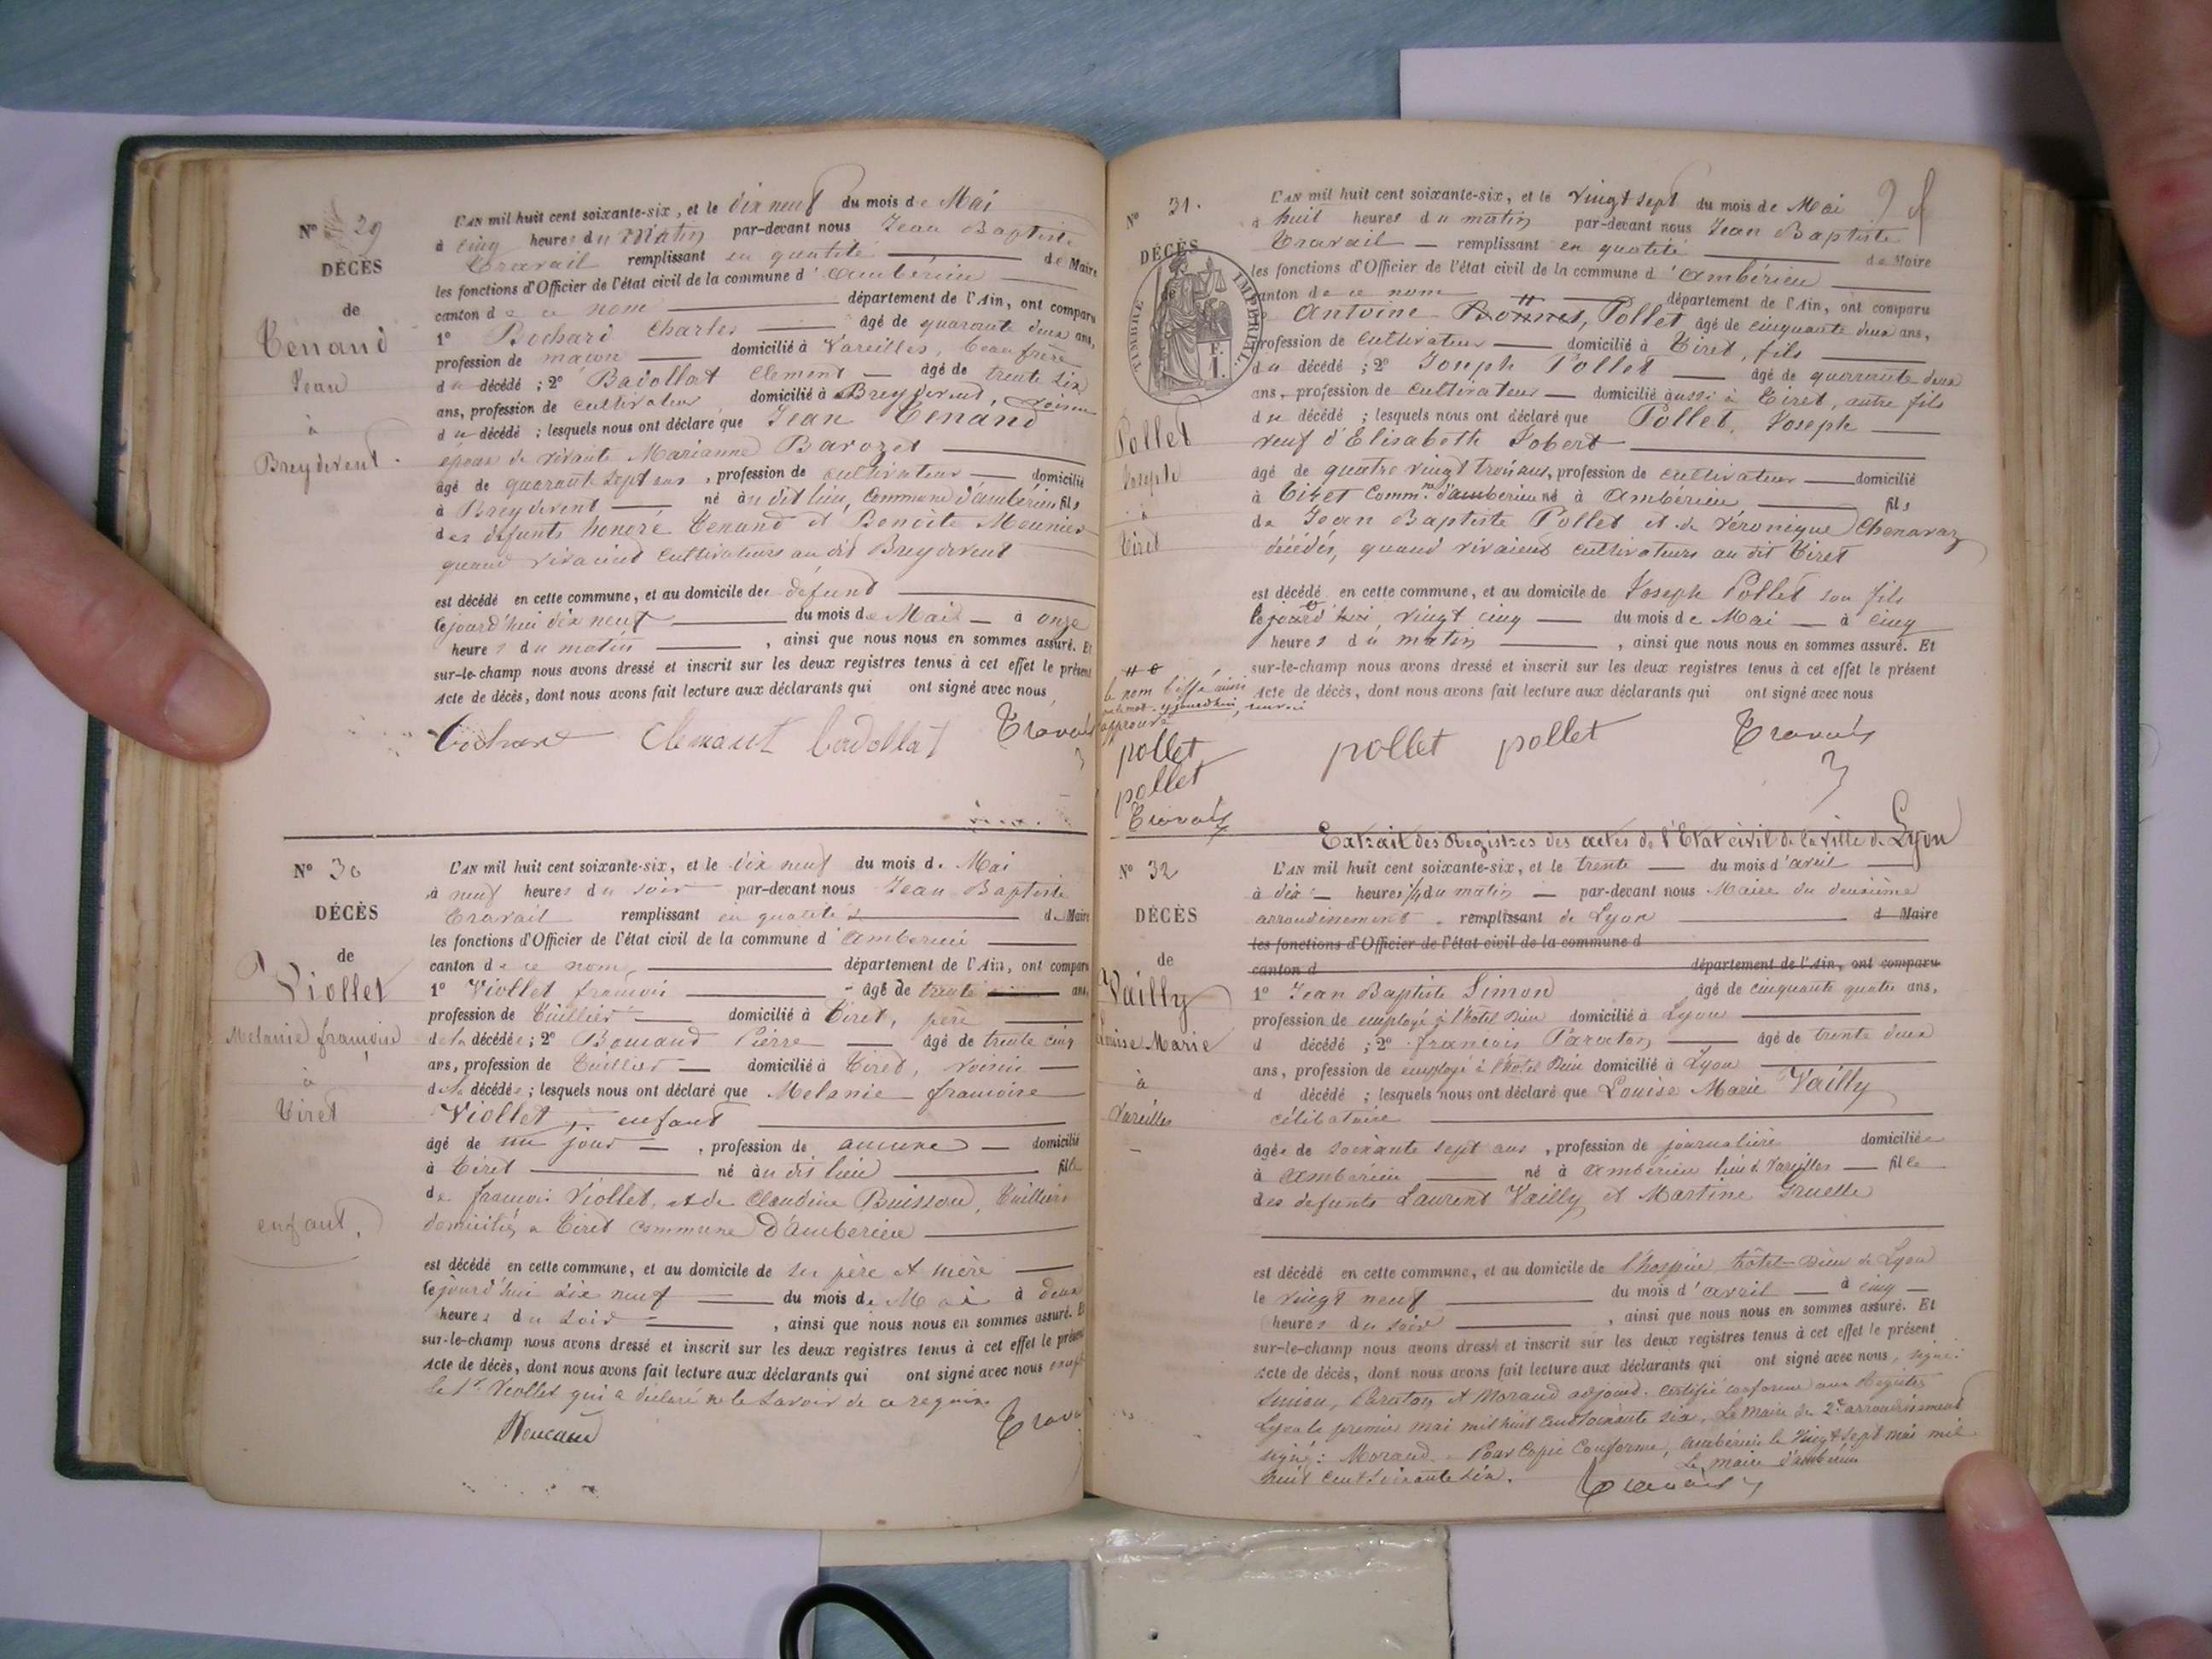 N° 29
DÉCÈS
de
Tenand
Jean
à
Breydevent
L'AN mil huit cent soixante-six, et le dix neuf du mois de Mai
à cinq heures du Matin par-devant nous Jean Baptiste
Travail remplissant en qualité de Maire
les fonctions d'Officier de l'état civil de la commune d'Ambérieu
canton de ce nom département de l'Ain, ont comparu
1° Bochard Charles âgé de quarante deux ans,
profession de maçon domicilié à Vareilles, beau frère
du décédé ; 2° Badollat Clement âgé de trente six
ans, profession de cultivateur domicilié à Breydevent, voisin
du décédé ; lesquels nous ont déclaré que Jean Tenand
époux de vivante Marianne Barozet
âgé de quarante sept ans, profession de cultivateur domicilié
à Breydevent né au dit lieu, commune d'ambérieu fils
des défunts honoré Tenand et Benoite Meunier
quand vivaient cultivateurs au dit Breydevent
est décédé en cette commune, et au domicile de défund
lejourd'hui dix neuf du mois de Mai à onze
heures du matin, ainsi que nous nous en sommes assuré. Et
sur-le-champ nous avons dressé et inscrit sur les deux registres tenus à cet effet le présent
Acte de décès, dont nous avons fait lecture aux déclarants qui ont signé avec nous
Bochard Clemant badollat Travail
N° 30
DÉCÈS
de
Viollet
Melanie françoise
à
Tiret
enfant.
L'AN mil huit cent soixante-six, et le dix neuf du mois de Mai
à neuf heures du soir par-devant nous Jean Baptiste
Travail remplissant en qualité de Maire
les fonctions d'Officier de l'état civil de la commune d'Ambérieu
canton de ce nom, département de l'Ain, ont comparu
1° Viollet françois âgé de trente ans,
profession de tuillier domicilié à Tiret, père
de la décédée ; 2° Pierre âgé de trente cinq
ans, profession de tuillier domicilié à Tiret, voisin
de la décédée ; lesquels nous ont déclaré que Melanie françoise
Viollet, enfant
âgé de un jour, profession de aucune domicilié
à Tiret né au dit lieu fille
de françois Viollet, et de Claudine Buisson, tuilliers
domiciliés a Tiret commune d'ambérieu
est décédé en cette commune, et au domicile de ses père et mère
lejourd'hui dix neuf du mois de Mai à deux
heures du soir, ainsi que nous nous en sommes assuré. Et
sur-le-champ nous avons dressé et inscrit sur les deux registres tenus à cet effet le présent
Acte de décès, dont nous avons fait lecture aux déclarants qui ont signé avec nous
le Sr Viollet qui a déclaré ne le savoir de ce requis
Trava
N° 31.
DÉCÈS
de
TIMBRE IMPÉRIAL
Pollet
Joseph
à
Tiret
L'AN mil huit cent soixante-six, et le vingt sept du mois de Mai
à huit heures du matin par-devant nous Jean Baptiste
Travail remplissant en qualité de Maire
les fonctions d'Officier de l'état civil de la commune d'Ambérieu
canton de ce nom département de l'Ain, ont comparu
Antoine Bonnet, Pollet âgé de cinquante deux ans,
profession de cultivateur domicilié à Tiret, fils
du décédé ; 2° Joseph Pollet âgé de quarante deux
ans, profession de cultivateur domicilié aussi à Tiret, autre fils
du décédé ; lesquels nous ont déclaré que Pollet, Joseph
veuf d'Elisabeth Jobert
âgé de quatre vingt trois ans, profession de cultivateur domicilié
à Tiret Comm.ne d'ambérieu né à Ambérieu fils
de Jean Baptiste Pollet et de Véronique Chenavaz
décédés, quand vivaient cultivateurs au dit Tiret
est décédé en cette commune, et au domicile de Joseph Pollet son fils
lejourd'hui, vingt cinq du mois de Mai à cinq
heures du matin, ainsi que nous nous en sommes assuré. Et
sur-le-champ nous avons dressé et inscrit sur les deux registres tenus à cet effet le présent
Acte de décès, dont nous avons fait lecture aux déclarants qui ont signé avec nous
le nom biffé ainsi
approuvé
pollet
pollet
Travail
pollet pollet Travail
Extrait des Registres des actes de l'Etat civil de la ville de Lyon
N° 32
DÉCÈS
de
Vailly
Louise Marie
à
Vareilles
L'AN mil huit cent soixante-six, et le trente du mois d'avril
à dix heures 1/4 du matin par-devant nous Maire du deuxième
arrondissement remplissant de Lyon d Maire
les fonctions d'Officier de l'état civil de la commune d
canton d département de l'Ain, ont comparu
1° Jean Baptiste Simon âgé de cinquante quatre ans,
profession de employé à l'hôtel Dieu domicilié à Lyon
d décédé ; 2° françois Paraton âgé de trente deux
ans, profession de employé à l'hôtel Dieu domicilié à Lyon
d décédé ; lesquels nous ont déclaré que Louise Marie Vailly
célibataire
âgée de soixante sept ans, profession de journalière domiciliée
à Ambérieu né à Ambérieu lieu d. Vareilles fille
des défunts Laurent Vailly et Martine Gruette
est décédé en cette commune, et au domicile de l'hospice hôtel-Dieu de Lyon
le vingt neuf du mois d'avril à cinq
heures du soir, ainsi que nous nous en sommes assuré. Et
sur-le-champ nous avons dressé et inscrit sur les deux registres tenus à cet effet le présent
Acte de décès, dont nous avons fait lecture aux déclarants qui ont signé avec nous, signé:
Simon, Paraton et Morand adjoint. Certifié conforme aux Registres
Lyon le premier mai mil huit cent soixante six, Le Maire du 2e arrondissement
signé: Morand. Pour Copie Conforme, Ambérieu le Vingt sept mai mil
huit cent soixante six. Le maire d'ambérieu
Travail